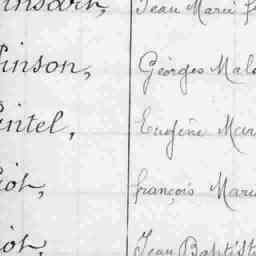 Jean Marie
inson, Georges
intel, Eugène
iot, françois Marie
iot, Jean Baptiste